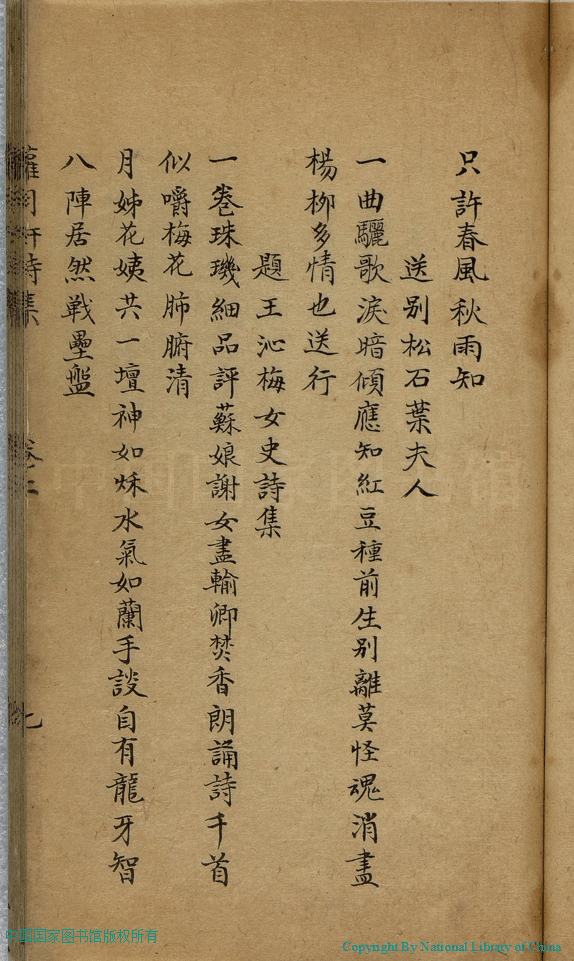 只許春風秋雨知
送別松石葉夫人
一曲驪歌淚暗傾應知紅豆種前生別離莫怪魂消盡
楊柳多情也送行
題王沁梅女史詩集
一卷珠璣細品評蘇娘謝女盡輸卿焚香朗誦詩千首
似嚼梅花肺腑清
月姊花姨共一壇神如秌水氣如蘭手談自有龍牙智
八陣居然戰壘盤
詩集
卷二
七
中国国家图书馆版权所有
Copyright By National Library of China